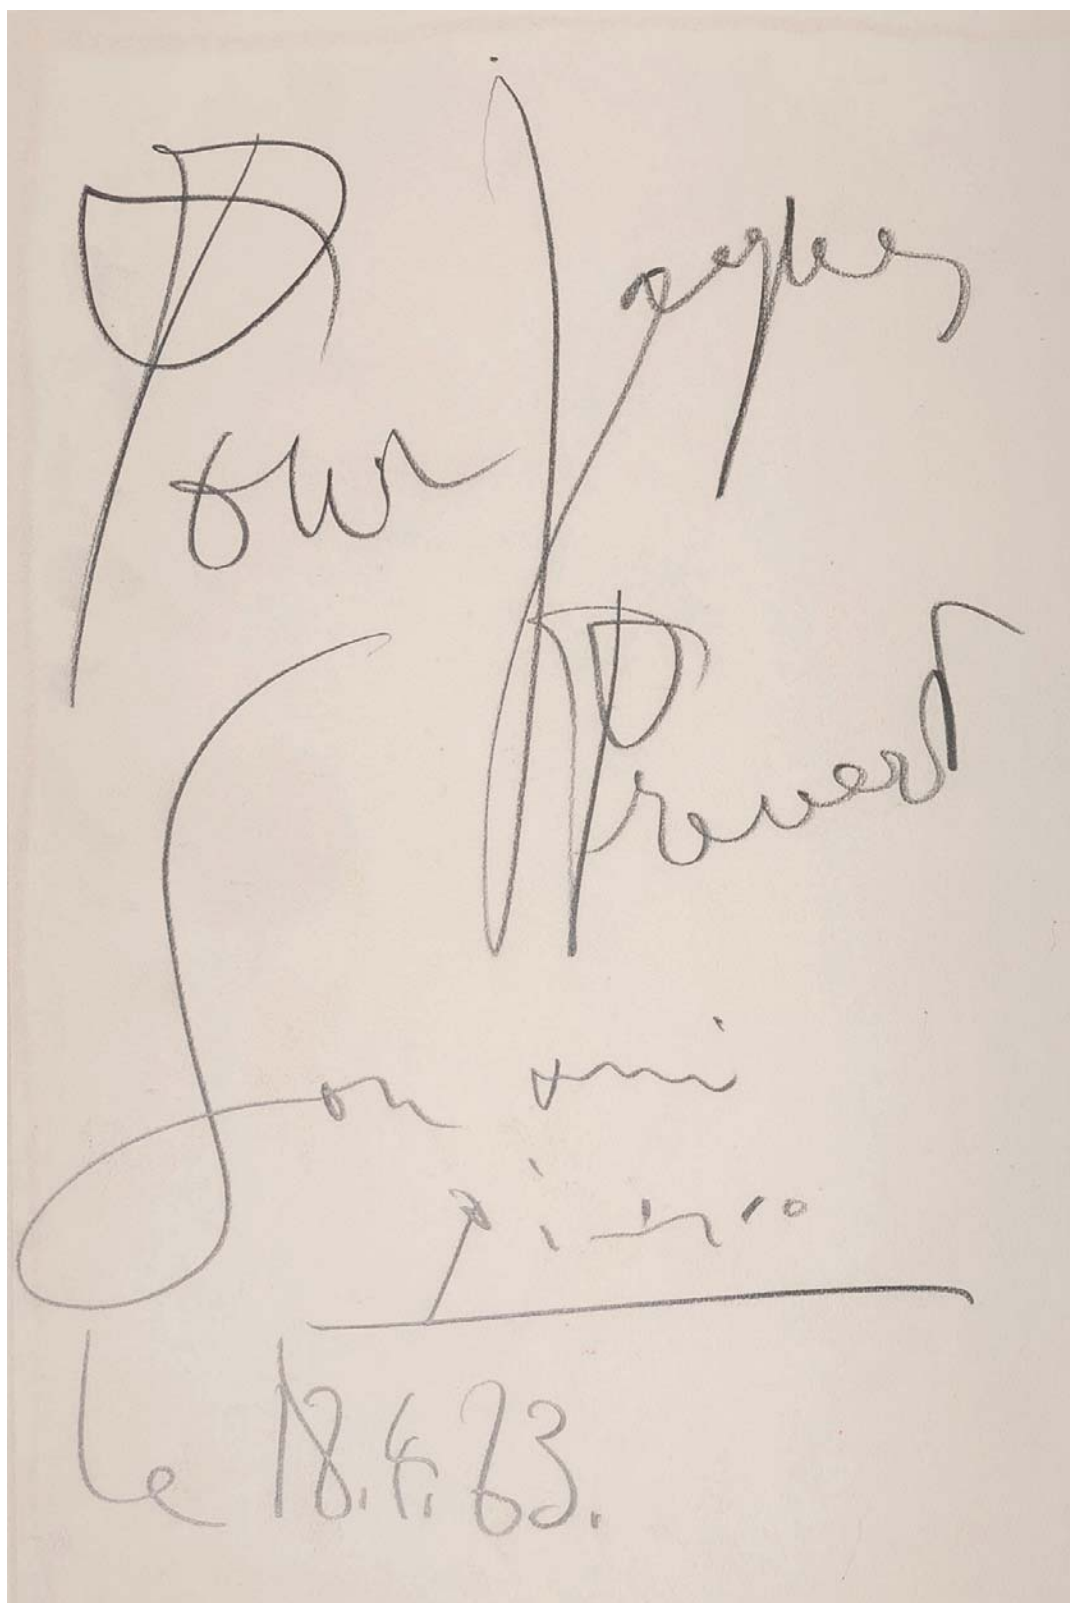 Pour Jacques
Prevert
Son ami
Picasso
le 18.4.63.